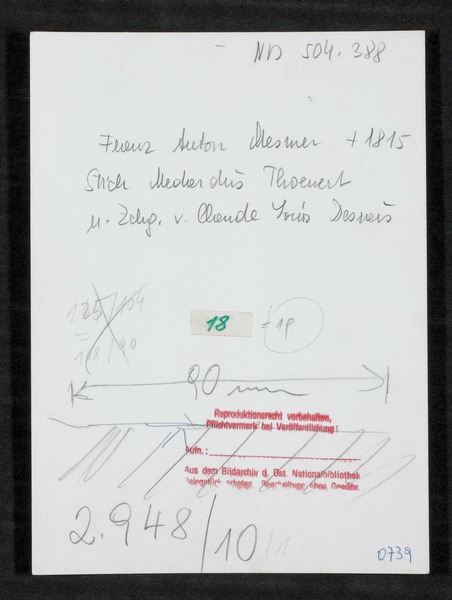 NB 504.388
Franz Anton Mesmer + 1815
Stich Medardus Thoenert
n. Zchg. v. Claude Louis Desrais
185/104
=
118/90
18
19
90 mm
Reproduktionsrecht vorbehalten,
Pflichtvermerk bei Veröffentlichung!
Aufn.:
Aus dem Bildarchiv d. Öst. Nationalbibliothek
ohne Gewähr.
2.948/10/1
0739